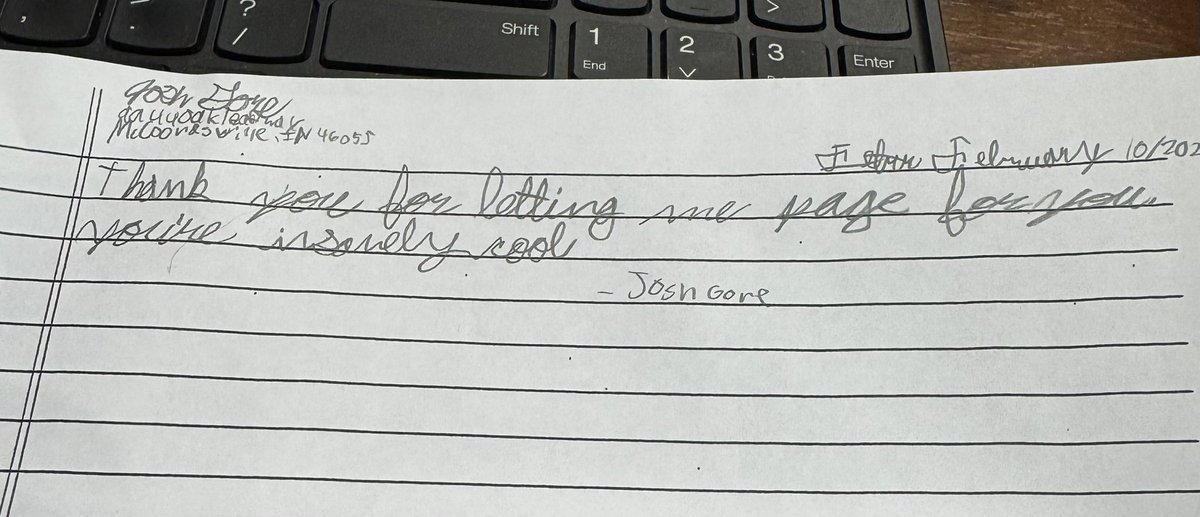 , .
? /
Shift
1 End
2
3
>
Enter
Josh Gore
McCordsville, IN 46055
February 10/202
Thank you for letting me page for you.
you're insanely cool
- Josh Gore